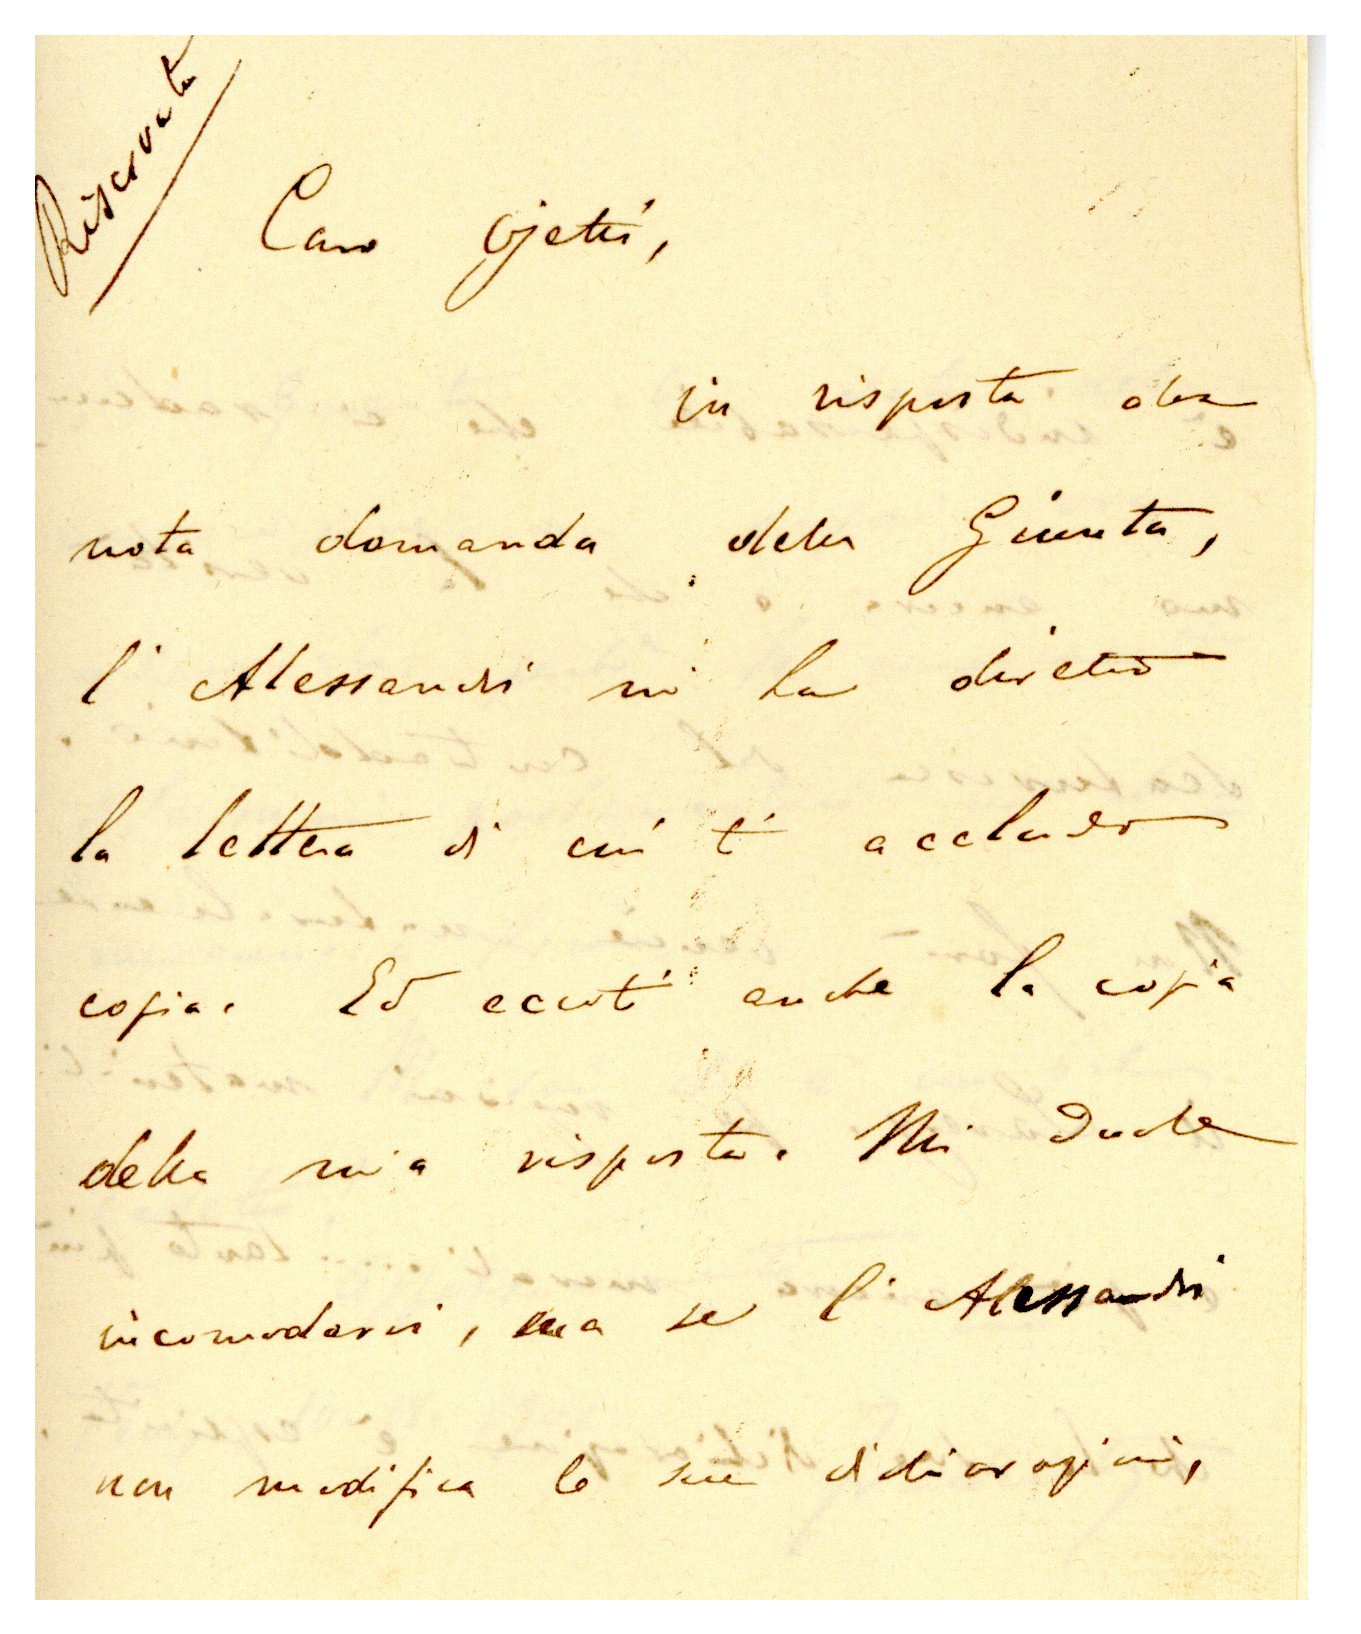 Riservata
Caro Ojetti,
in risposta alla
nota domanda della Giunta,
l'Alessandri mi ha diretto
la lettera di cui ti accludo
copia. Ed eccoti anche la copia
della mia risposta. Mi duole
incomodarvi, ma se l'Alessandri
non modifica le sue dichiarazioni,